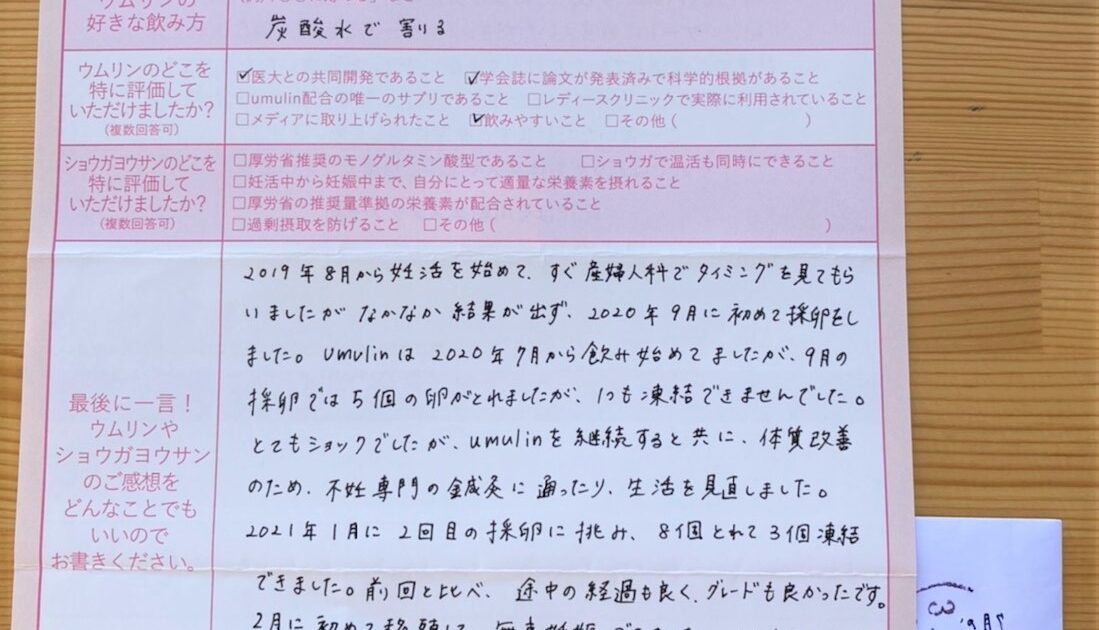 ウムリンの
好きな飲み方
炭酸水で割りる
ウムリンのどこを
特に評価して
いただけましたか?
(複数回答可)
☑医大との共同開発であること ☑学会誌に論文が発表済みで科学的根拠があること
□umulin配合の唯一のサプリであること □レディースクリニックで実際に利用されていること
□メディアに取り上げられたこと ☑飲みやすいこと □その他( )
ショウガヨウサンのどこを
特に評価して
いただけましたか?
(複数回答可)
□厚労省推奨のモノグルタミン酸型であること □ショウガで温活も同時にできること
□妊活中から妊娠中まで、自分にとって適量な栄養素を摂れること
□厚労省の推奨量準拠の栄養素が配合されていること
□過剰摂取を防げること □その他( )
最後に一言!
ウムリンや
ショウガヨウサン
のご感想を
どんなことでも
いいので
お書きください。
2019年8月から妊活を始めて、すぐ産婦人科でタイミングを見てもら
いましたがなかなか結果が出ず、2020年9月に初めて採卵をし
ました。umulinは2020年7月から飲み始めてましたが、9月の
採卵では5個の卵がとれましたが、1つも凍結できませんでした。
とてもショックでしたが、umulinを継続すると共に、体質改善
のため、不妊専門の鍼灸に通ったり、生活を見直しました。
2021年1月に2回目の採卵に挑み、8個とれて3個凍結
できました。前回と比べ、途中の経過も良く、グレードも良かったです。
2月に初めて移植して